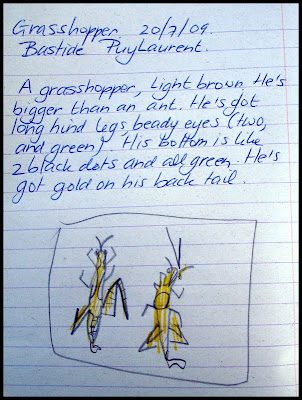 Grasshopper 20/7/09.
Bastide PuyLaurent.
A grasshopper, light brown. He's
bigger than an ant. He's got
long hind legs, beady eyes (two,
and green). His bottom is like
2 black dots and all green. He's
got gold on his back tail.